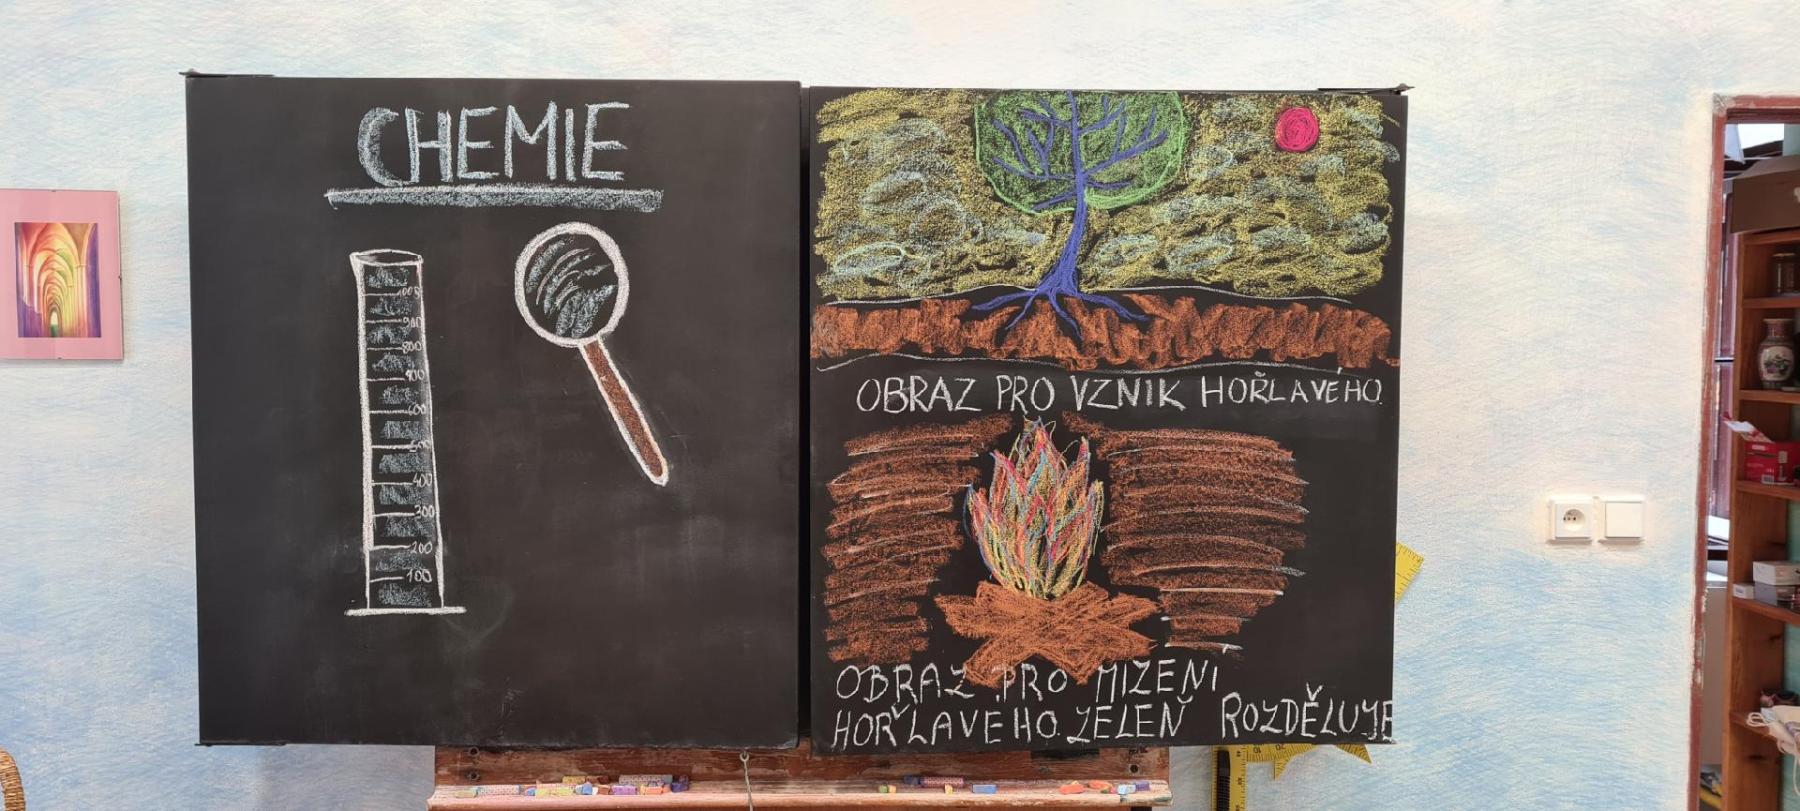 CHEMIE
900
800
600
400
300
200
100
OBRAZ PRO VZNIK HOŘLAVÉHO
OBRAZ PRO MIZENÍ
HOŘLAVEHO. ZELEŇ ROZDĚLUJE